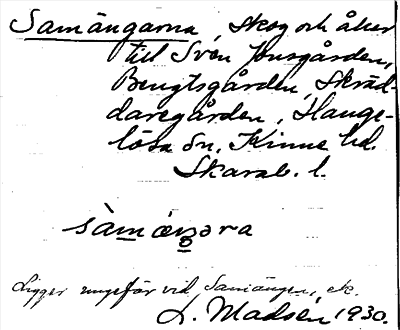 Samängarna, Skog och åker
till Sven Jonsgården,
Bengtsgården, Skräd-
daregården, Hange-
lösa Sn. Kinne hd.
Skarab. l.
sàmáŋəra
Ligger ungefär vid Samängen, ek.
L. Madsén 1930.